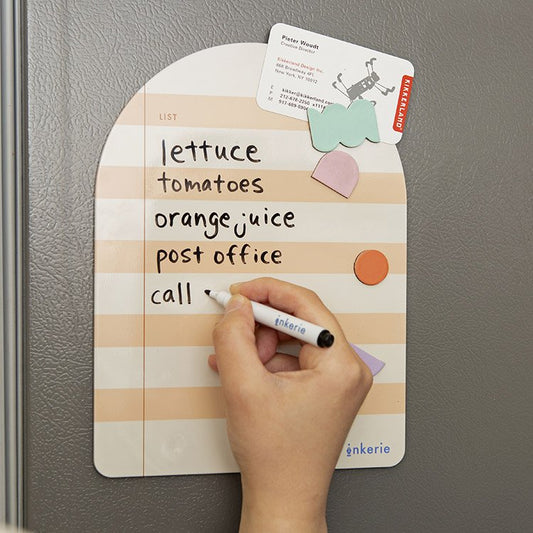 Pieter Woudt
Creative Director
Kikkerland Design Inc.
666 Broadway 4Fl
New York, NY 10012
E kikker@kikkerland.com
P 212-678-2250 x111
M 917-689-0906
KIKKERLAND
LIST
lettuce
tomatoes
orange juice
post office
call
inkerie
inkerie